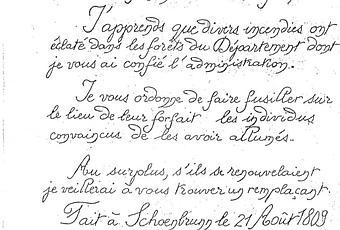 J'apprends que divers incendies ont
éclaté dans les forêts du Département dont
je vous ai confié l'administration.
Je vous ordonne de faire fusiller sur
le lieu de leur forfait les individus
convaincus de les avoir allumés.
Au surplus, s'ils se renouvelaient
je veillerai à vous trouver un remplaçant.
Fait à Schoenbrunn le 21 Août 1809